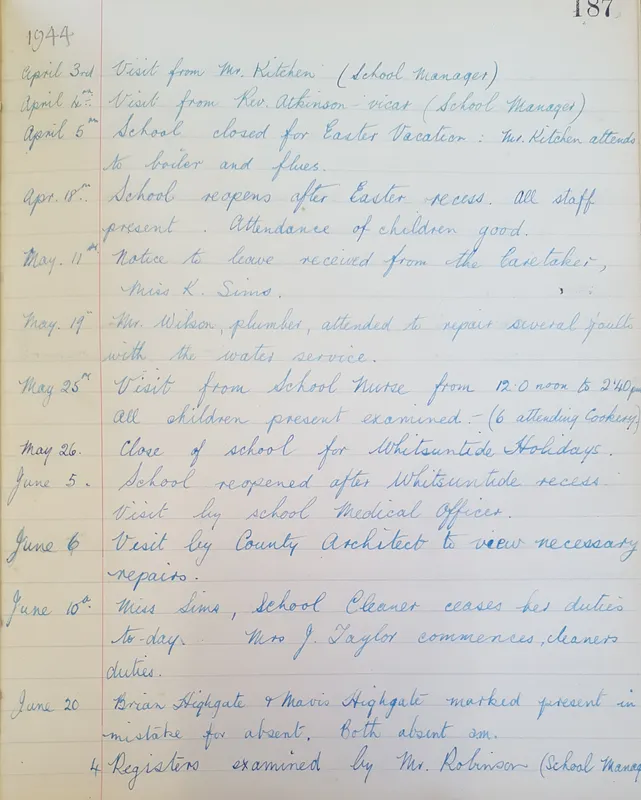 187
1944
April 3rd Visit from Mr. Kitchen (School Manager)
April 4th Visit from Rev. Atkinson - vicar (School Manager)
April 5th School closed for Easter Vacation : Mr. Kitchen attends
to boiler and flues.
Apr. 18th School reopens after Easter recess. All staff
present. Attendance of children good.
May. 11th Notice to leave received from the Caretaker,
Miss K. Sims.
May. 19th Mr. Wilson, plumber, attended to repair several faults
with the water service.
May 25th Visit from School Nurse from 12.0 noon to 2.40 pm
All children present examined :- (6 attending Cookery)
May 26. Close of school for Whitsuntide Holidays.
June 5. School reopened after Whitsuntide recess.
Visit by school Medical Officer.
June 6 Visit by County Architect to view necessary
repairs.
June 10th Miss Sims, School Cleaner ceases her duties
to-day. Mrs J. Taylor commences, cleaners
duties.
June 20 Brian Highgate & Mavis Highgate marked present in
mistake for absent. Both absent am.
4 Registers examined by Mr. Robinson (School Manag